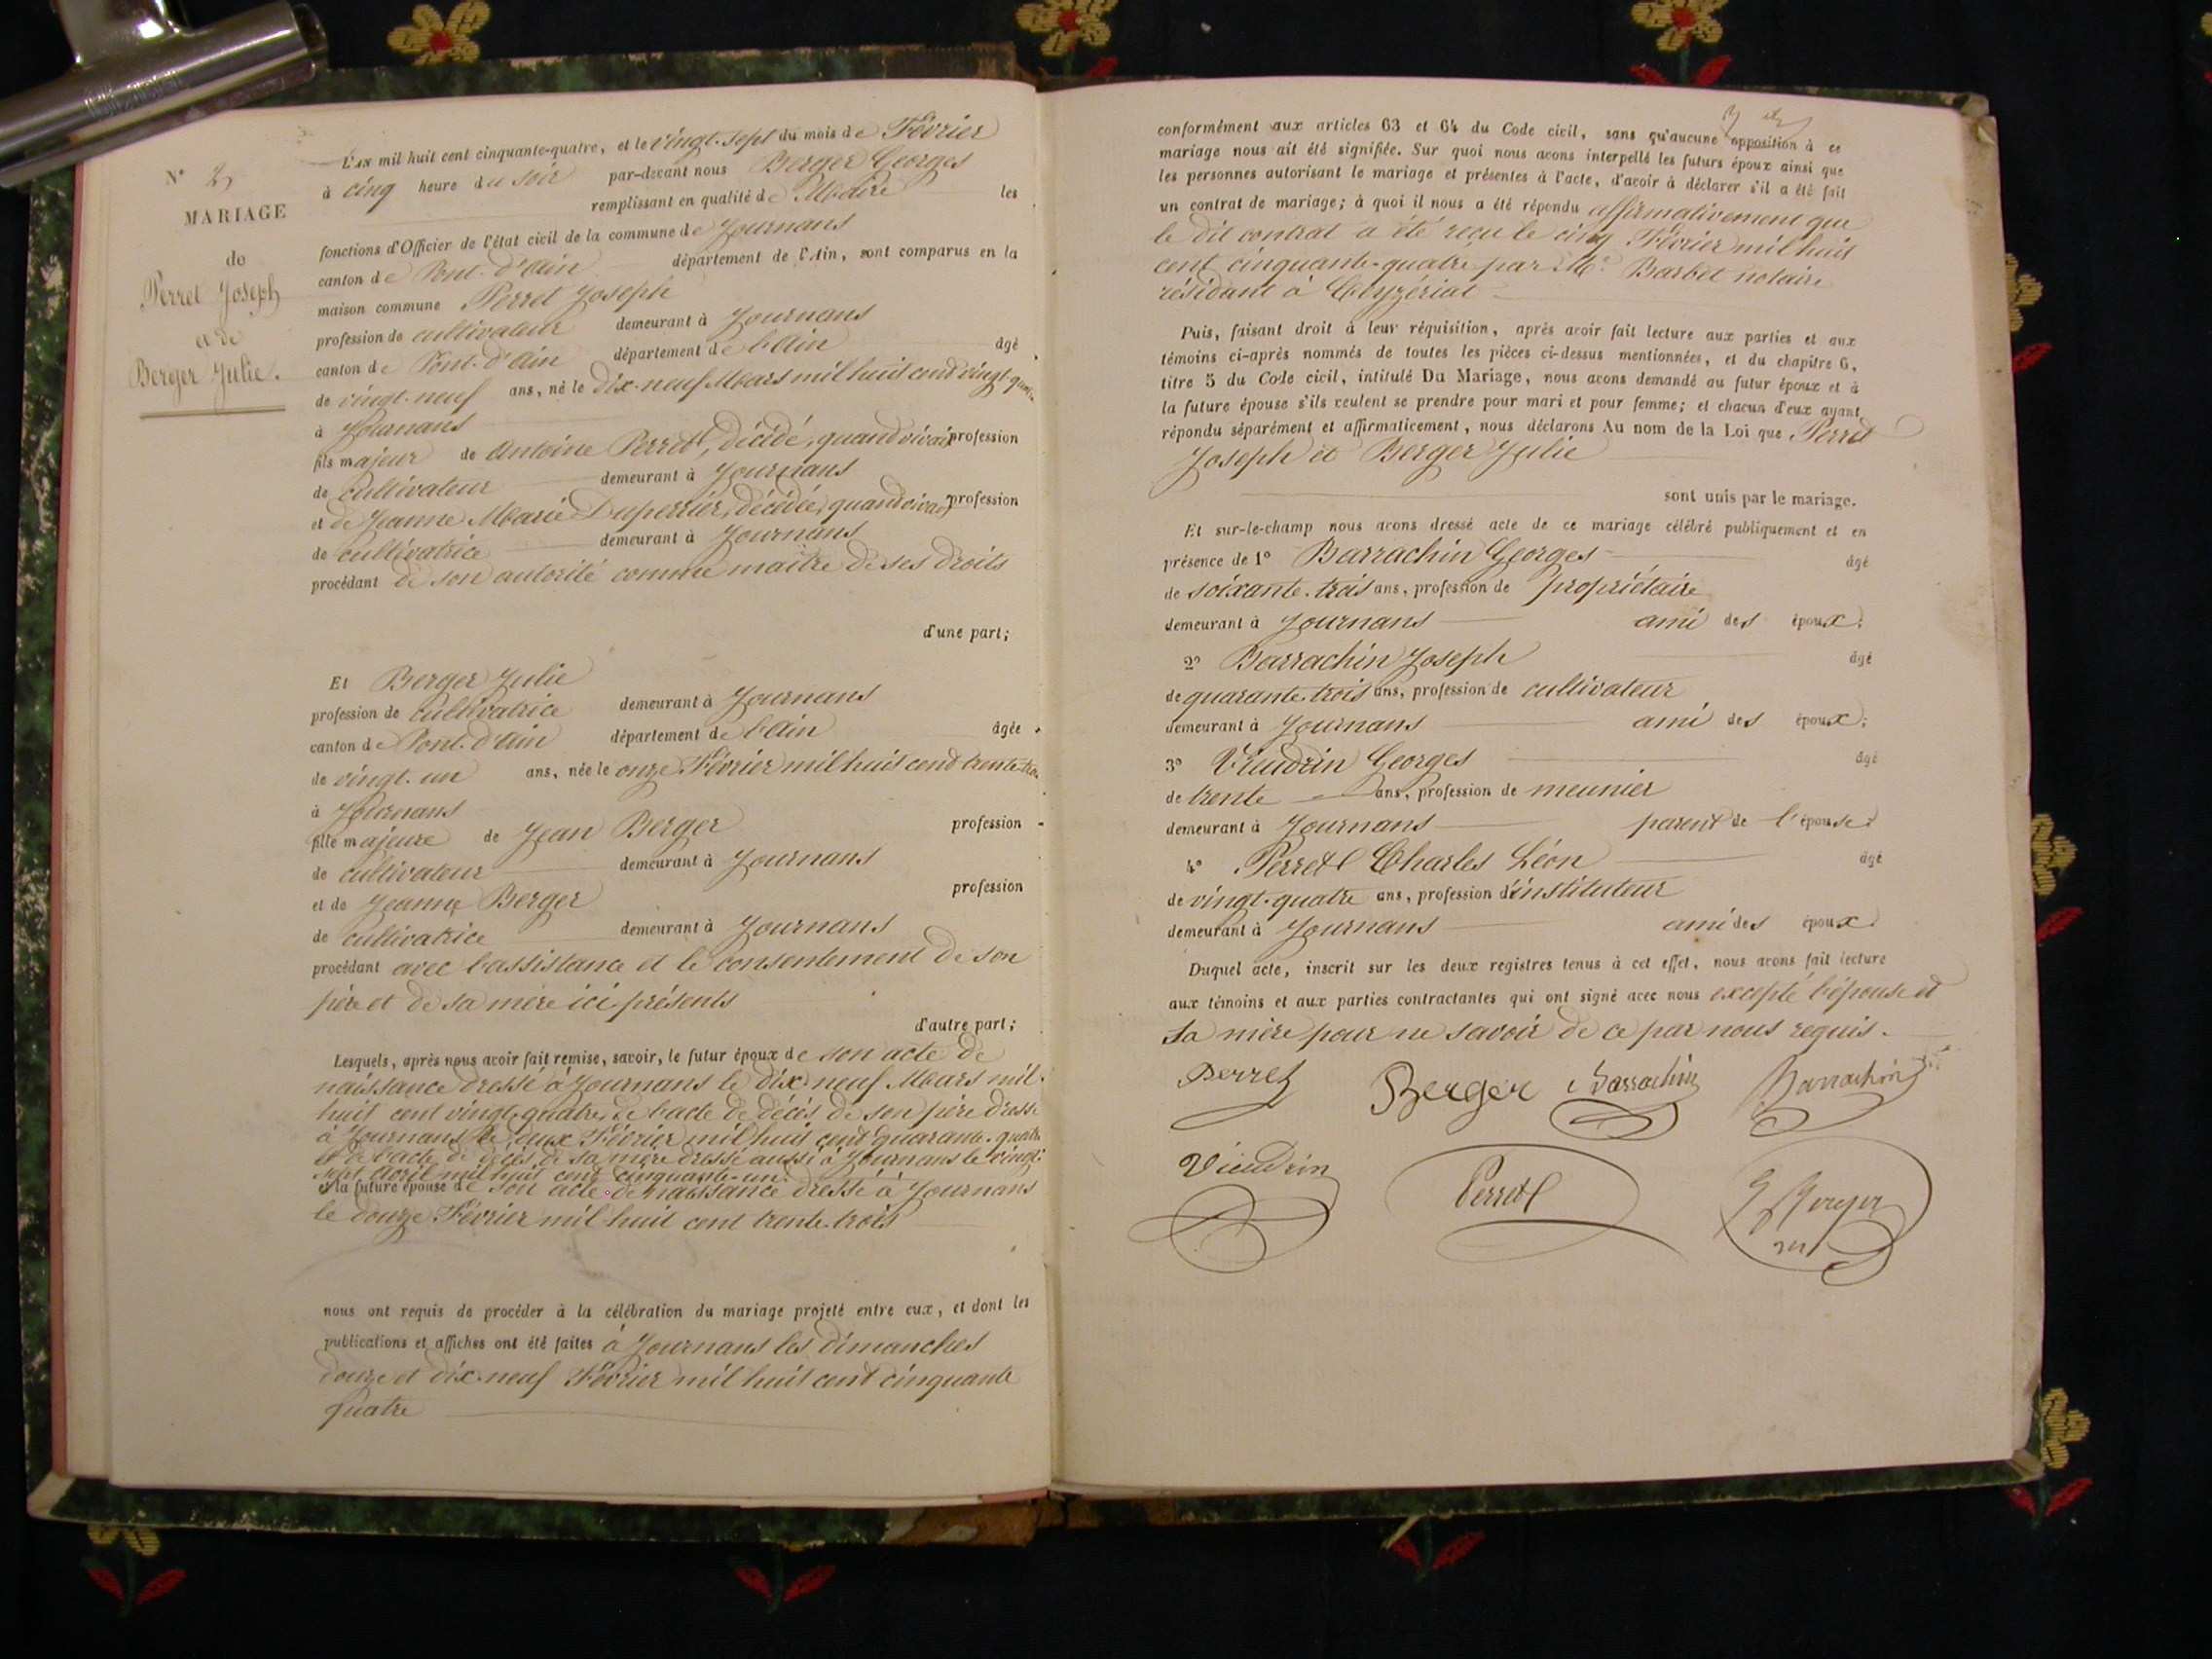 N° 2
MARIAGE
de
Perret Joseph
et de
Berger Julie.
L'An mil huit cent cinquante-quatre, et le vingt-sept du mois de Février
à cinq heure du soir par-devant nous Berger Georges
remplissant en qualité de Maire les
fonctions d'Officier de l'état civil de la commune de Journans
canton de Pont-d'Ain département de l'Ain, sont comparus en la
maison commune Perret Joseph
profession de cultivateur demeurant à Journans
canton de Pont-d'Ain département de l'Ain âgé
de vingt-neuf ans, né le dix-neuf Mars mil huit cent vingt-quatre
à Journans
fils majeur de Antoine Perret, décédé, quand vivait profession
de cultivateur demeurant à Journans
et de Jeanne Marie Duperrier, décédée, quand vivait profession
de cultivatrice demeurant à Journans
procédant de son autorité comme maître de ses droits
d'une part;
Et Berger Julie
profession de cultivatrice demeurant à Journans
canton de Pont-d'Ain département de l'Ain âgée
de vingt-un ans, née le onze Février mil huit cent trente-trois
à Journans
fille majeure de Jean Berger profession
de cultivateur demeurant à Journans
et de Jeanne Berger profession
de cultivatrice demeurant à Journans
procédant avec l'assistance et le consentement de son
père et de sa mère ici présents
d'autre part;
Lesquels, après nous avoir fait remise, savoir, le futur époux de son acte de
naissance dressé à Journans le dix-neuf Mars mil
huit cent vingt-quatre, de l'acte de décès de son père dressé
à Journans le deux Février mil huit cent quarante-quatre
et de l'acte de décès de sa mère dressé aussi à Journans le vingt-
sept Avril mil huit cent cinquante-un.
et la future épouse de son acte de naissance dressé à Journans
le douze Février mil huit cent trente-trois
nous ont requis de procéder à la célébration du mariage projeté entre eux, et dont les
publications et affiches ont été faites à Journans les dimanches
douze et dix-neuf Février mil huit cent cinquante
quatre
conformément aux articles 63 et 64 du Code civil, sans qu'aucune opposition à ce
mariage nous ait été signifiée. Sur quoi nous avons interpellé les futurs époux ainsi que
les personnes autorisant le mariage et présentes à l'acte, d'avoir à déclarer s'il a été fait
un contrat de mariage; à quoi il nous a été répondu affirmativement que
le dit contrat a été reçu le cinq Février mil huit
cent cinquante-quatre par Me Barbet notaire
résidant à Ceyzériat
Puis, faisant droit à leur réquisition, après avoir fait lecture aux parties et aux
témoins ci-après nommés de toutes les pièces ci-dessus mentionnées, et du chapitre 6,
titre 5 du Code civil, intitulé Du Mariage, nous avons demandé au futur époux et à
la future épouse s'ils veulent se prendre pour mari et pour femme; et chacun d'eux ayant
répondu séparément et affirmativement, nous déclarons Au nom de la Loi que Perret
Joseph et Berger Julie
sont unis par le mariage.
Et sur-le-champ nous avons dressé acte de ce mariage célébré publiquement et en
présence de 1° Barrachin Georges âgé
de soixante-trois ans, profession de propriétaire
demeurant à Journans ami des époux;
2° Barrachin Joseph âgé
de quarante-trois ans, profession de cultivateur
demeurant à Journans ami des époux;
3° Vieudrin Georges âgé
de trente ans, profession de meunier
demeurant à Journans parent de l'épouse;
4° Perret Charles Léon âgé
de vingt-quatre ans, profession d'instituteur
demeurant à Journans ami des époux.
Duquel acte, inscrit sur les deux registres tenus à cet effet, nous avons fait lecture
aux témoins et aux parties contractantes qui ont signé avec nous excepté l'épouse et
sa mère pour ne savoir de ce par nous requis.
Perret Berger Barrachin Barrachin
Vieudrin Perret G Berger